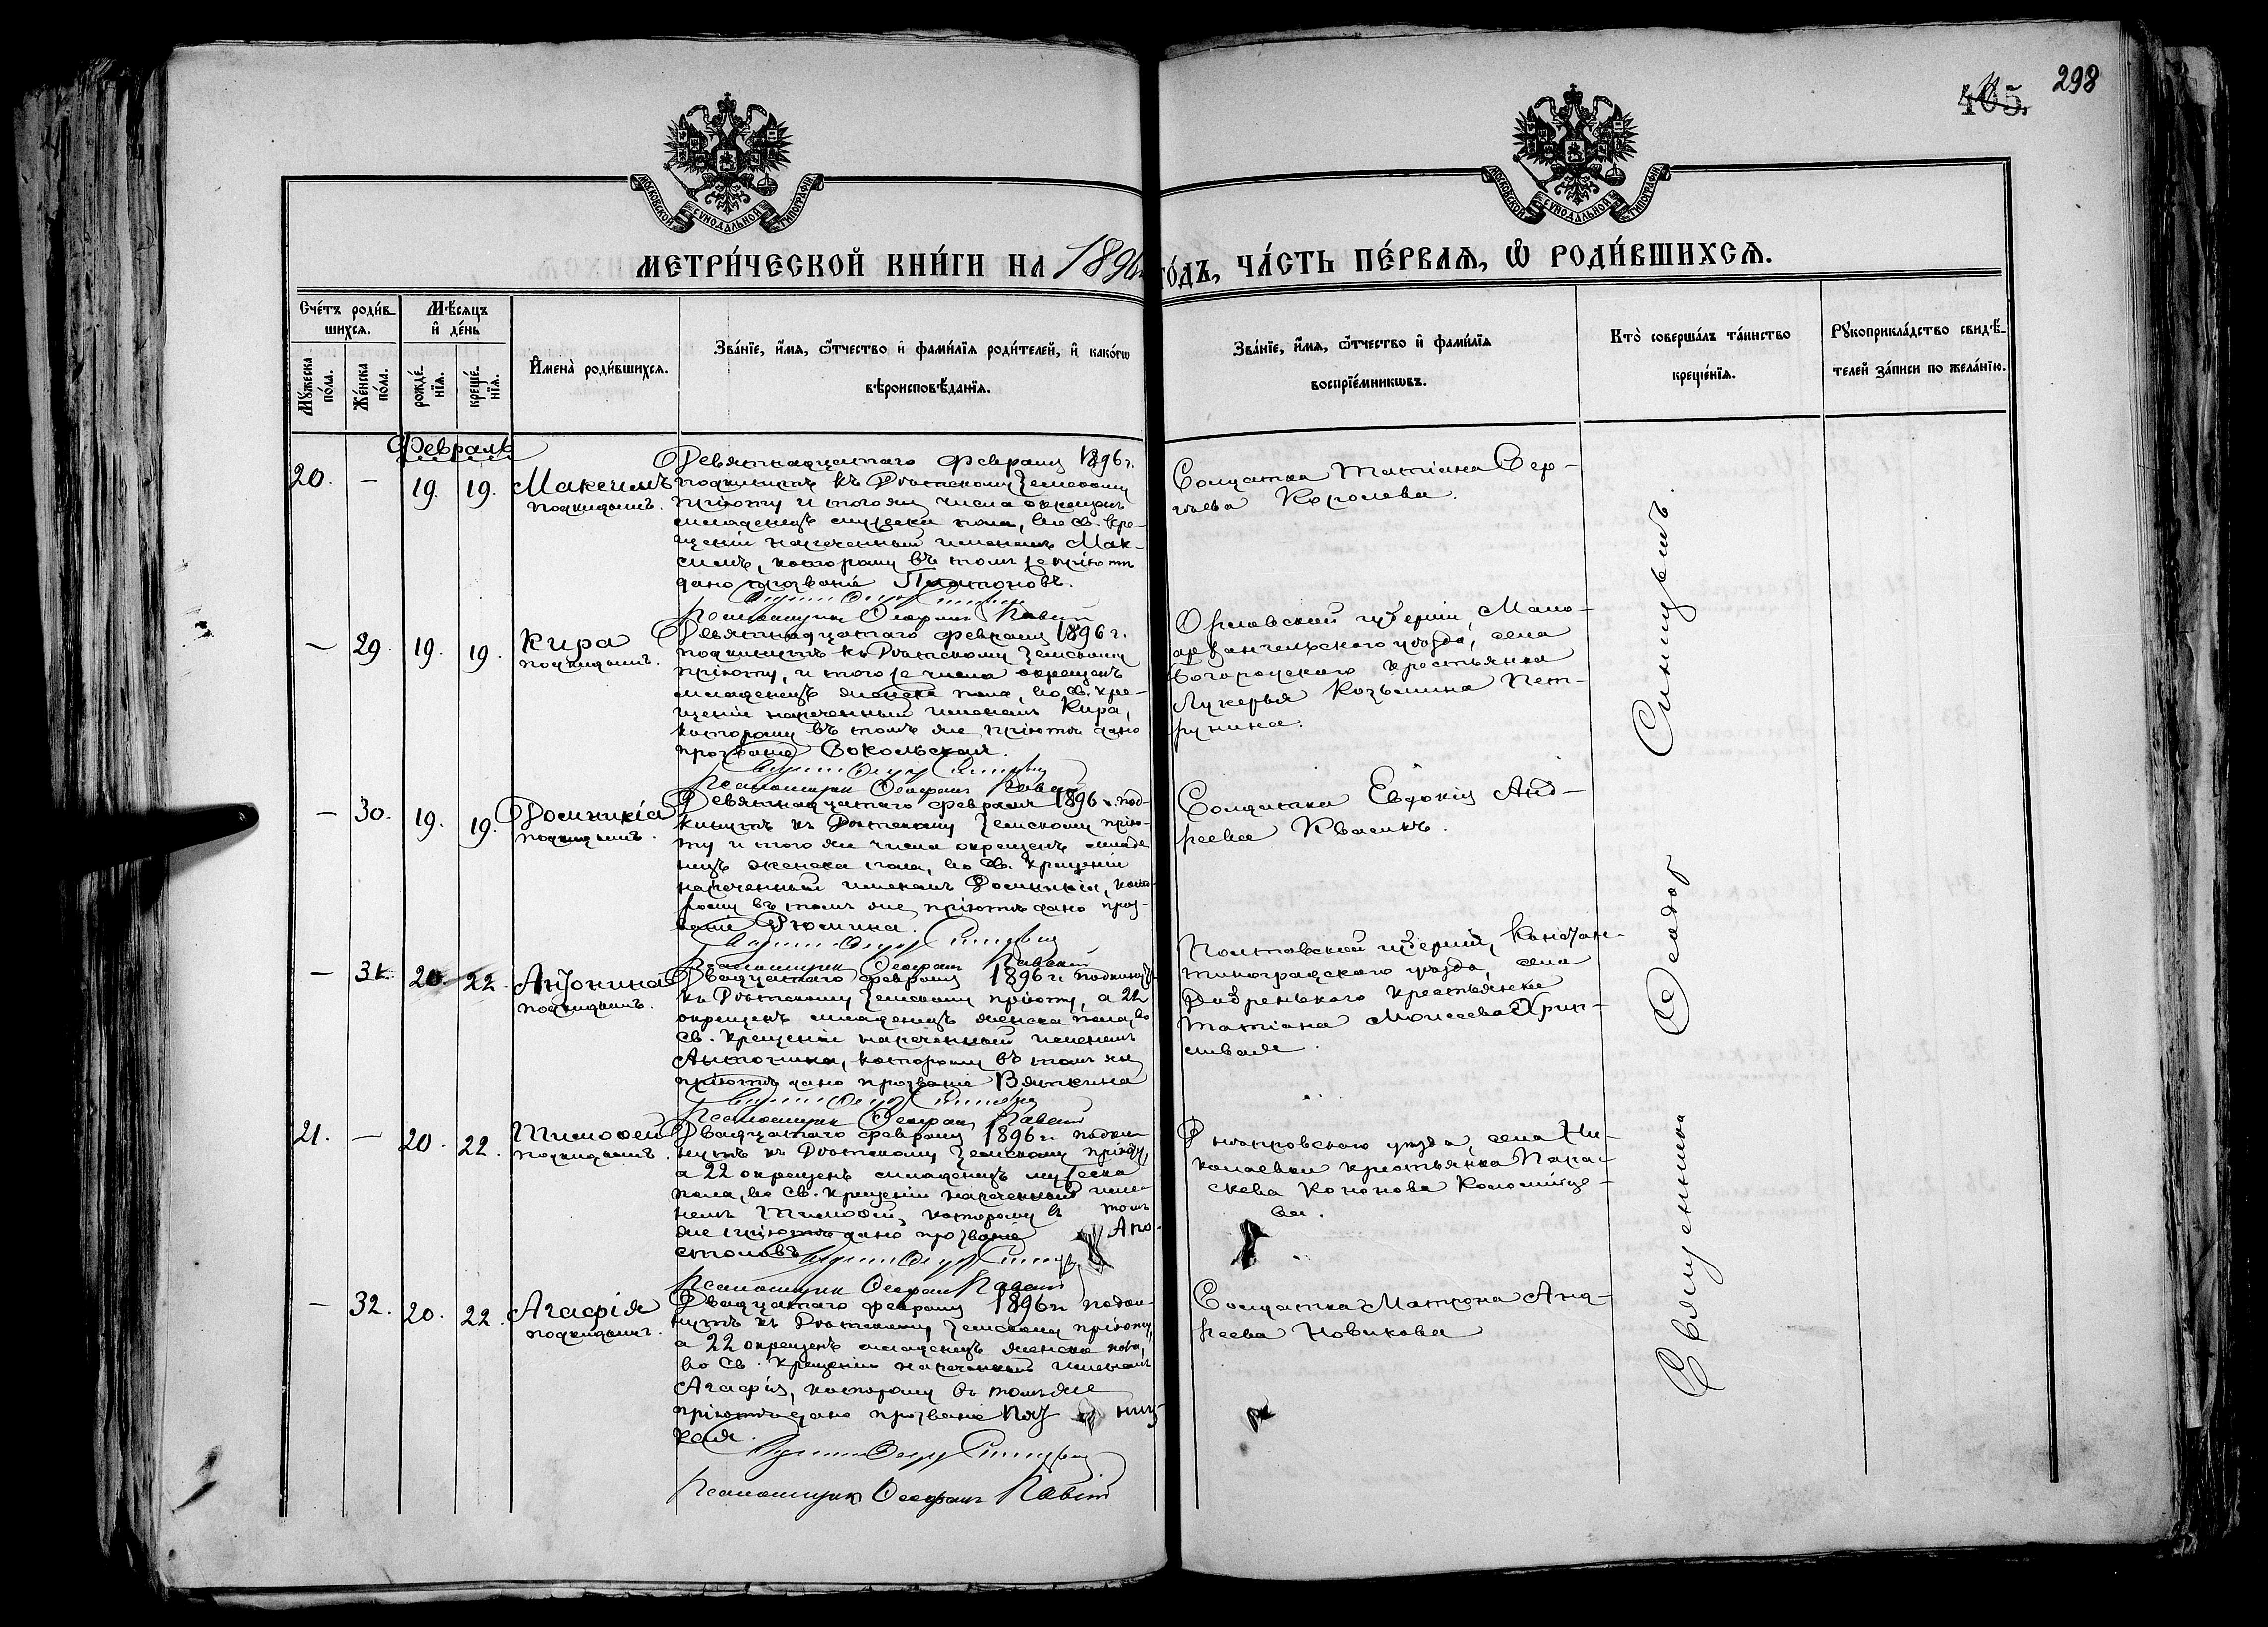 298
405.
МОСКОВСКОЙ СѴНОДАЛЬНОЙ ТИПОГРАФІИ
МОСКОВСКОЙ СѴНОДАЛЬНОЙ ТИПОГРАФІИ
МЕТРИ́ЧЕСКОЙ КНИ́ГИ НА 1896 ГО́ДЪ, ЧА́СТЬ ПЕ́РВАѦ, Ѽ РОДИ́ВШИХСѦ.
Сче́тъ роди́в-
шихсѧ.
Мѣ́сѧцъ
и҆ де́нь
Мꙋ́жеска
по́ла.
Же́нска
по́ла.
рожде́-
нїѧ.
креще́-
нїѧ.
И҆мена̀ роди́вшихсѧ.
Зва́нїе, и҆́мѧ, ѻ҆́тчество и҆ фами́лїѧ роди́телей, и҆ како́гѡ
вѣроисповѣ́данїѧ.
Зва́нїе, и҆́мѧ, ѻ҆́тчество и҆ фами́лїѧ
воспрїе́мникѡвъ.
Кто̀ соверша́лъ та́инство
креще́нїѧ.
Рꙋкоприкла́дство свидѣ́-
телей за́писи по жела́нїю.
Февраль
20. — 19. 19. Максимъ
подкидышъ.
Девятнадцатаго февраля 1896 г.
подкинутъ къ Дѣтскому Земскому
пріюту и того же числа окрещенъ
младенецъ мужска пола, во св. кре-
щеніи нареченный именемъ Мак-
симъ, которому въ томъ же пріютѣ
дано прозваніе Платоновъ.
Псаломщикъ
Солдатка Татіана Сер-
гѣева Королева.
— 29. 19. 19. Кира
подкидышъ.
Девятнадцатаго февраля 1896 г.
подкинутъ къ Дѣтскому Земскому
пріюту, и того же числа окрещенъ
младенецъ женска пола, во св. кре-
щеніи нареченный именемъ Кира,
которому въ томъ же пріютѣ дано
прозваніе Сокольская.
Псаломщикъ
Орловской губерніи, Мало-
архангельскаго уѣзда, села
Богородскаго крестьянка
Лукерья Козьмина Пет-
рунина.
— 30. 19. 19. Домникія
подкидышъ.
Девятнадцатаго февраля 1896 г. под-
кинутъ къ Дѣтскому Земскому прію-
ту и того же числа окрещенъ младе
нецъ женска пола, во св. крещеніи
нареченный именемъ Домникія, кото-
рому въ томъ же пріютѣ дано проз-
ваніе Рюмина.
Псаломщикъ
Солдатка Евдокія Анд-
реева Квасикъ.
— 31. 20. 22. Антонина
подкидышъ.
Двадцатаго февраля 1896 г. подкинутъ
къ Дѣтскому Земскому пріюту, а 22
окрещенъ младенецъ женска пола, во
св. крещеніи нареченный именемъ
Антонина, которому въ томъ же
пріютѣ дано прозваніе Вяткина
Псаломщикъ
Полтавской губерніи, Констан-
тиноградскаго уѣзда, села
крестьянка
Татіана Моисеева
21. — 20. 22. Тимоѳей
подкидышъ.
Двадцатаго февраля 1896 г. подки-
нутъ къ Дѣтскому Земскому пріюту,
а 22 окрещенъ младенецъ мужеска
пола, во св. крещеніи нареченный име-
немъ Тимоѳей, которому въ томъ
же пріютѣ дано прозваніе Апо-
столовъ
Псаломщикъ
уѣзда, села Ни-
колаевки крестьянка Пара-
скева Кононова Коломійце-
ва.
— 32. 20. 22. Агафія
подкидышъ.
Двадцатаго февраля 1896 г. подки-
нутъ къ Дѣтскому Земскому пріюту,
а 22 окрещенъ младенецъ женска пола,
во св. крещеніи нареченный именемъ
Агафія, которому въ томъ же
пріютѣ дано прозваніе
кая.
Псаломщикъ
Солдатка Матрона Анд-
реева Новикова
Священникъ Ѳеодоръ Синицкій.